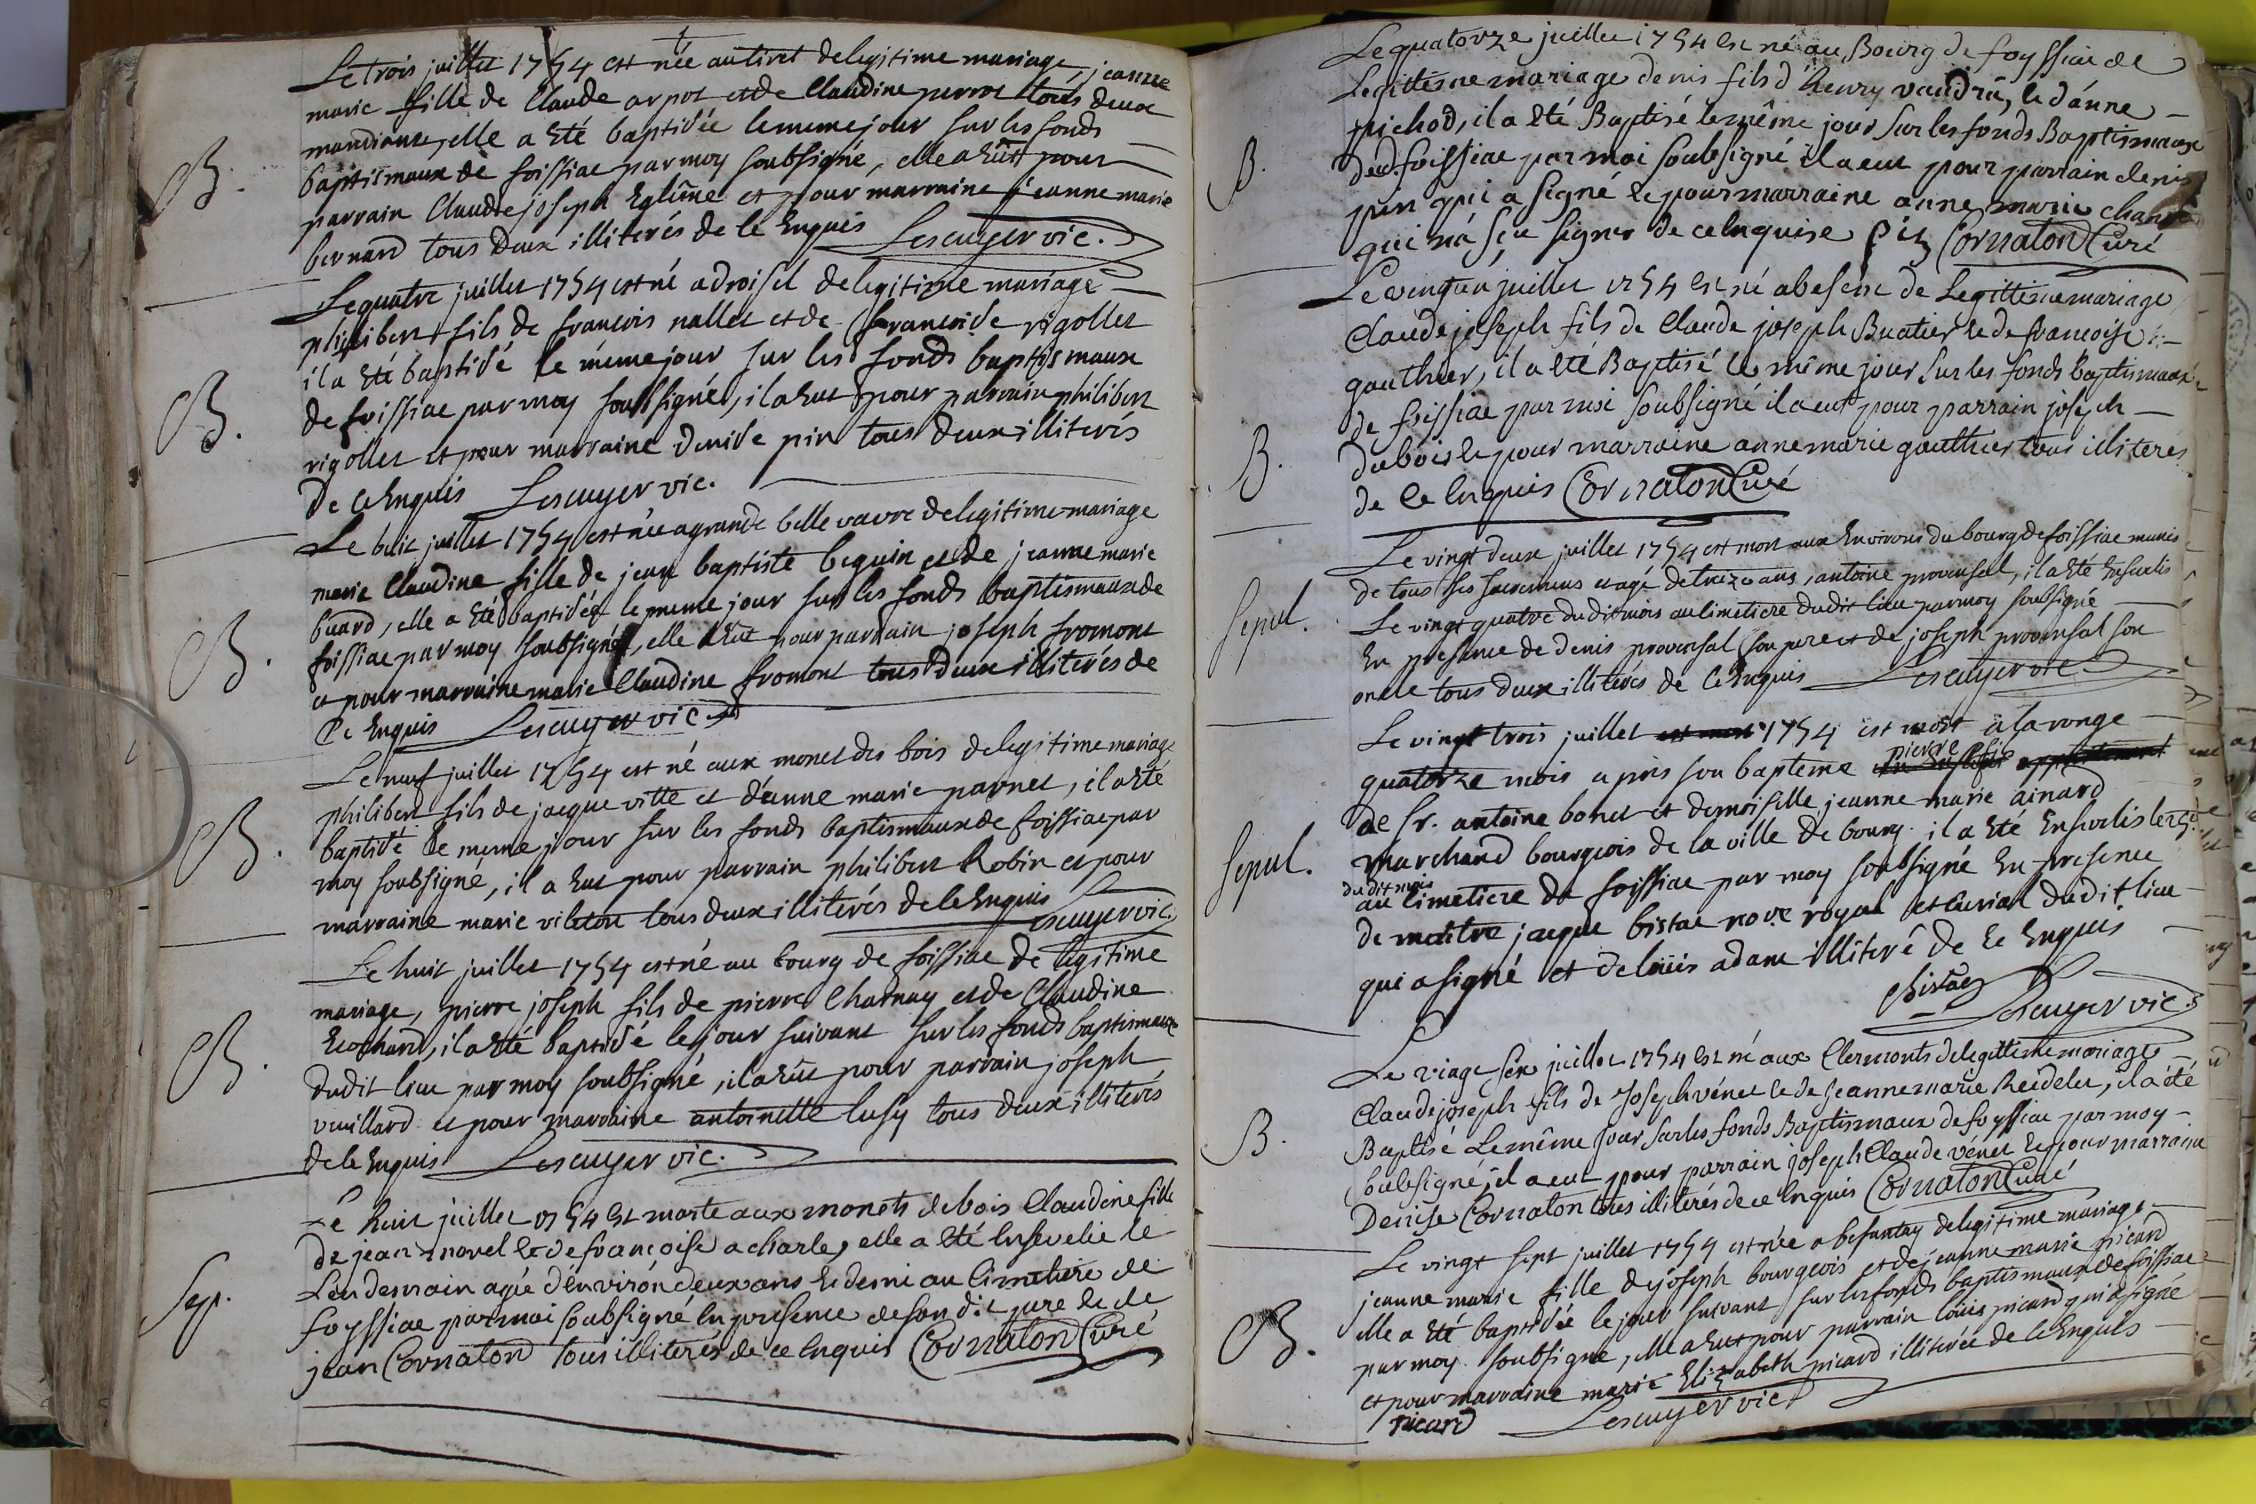 Le trois juillet 1754 est née au tiret de legitime mariage jeanne
marie fille de Claude arpot et de Claudine perrot tous deux
mandiants, elle a Eté baptisée le meme jour sur les fonds
baptismaux de foissiac par moy soubsigné, elle a Eût pour
parrain Claude joseph et pour marraine jeanne marie
bernard tous deux illiterés de ce Enquis Lescuyer vic.
B.
Le quatre juillet 1754 est né a droisel de legitime mariage
philibert fils de francois nallet et de francoise rigollet
il a Eté baptisé le meme jour sur les fonds baptismaux
de foissiac par moy soubsigné, il a Eut pour parrain philibert
rigollet et pour marraine denise pin tous deux illiterés
de ce Enquis Lescuyer vic.
B.
Le huit juillet 1754 est née a grande belle vavre de legitime mariage
marie Claudine fille de jean baptiste bequin et de jeanne marie
buard, elle a Eté baptisée le meme jour sur les fonds baptismaux de
foissiac par moy soubsigné, elle a Eut pour parrain joseph fromont
et pour marraine marie Claudine fromont tous deux illiterés de
Ce Enquis Lescuyer vic
B.
Le neuf juillet 1754 est né aux monets des bois de legitime mariage
philibert fils de jacque vitte et d'anne marie parnet, il a Eté
baptisé le meme jour sur les fonds baptismaux de foissiac par
moy soubsigné, il a Eut pour parrain philibert Robin et pour
marraine marie vileton tous deux illiterés de ce Enquis
Lescuyer vic.
B.
Le huit juillet 1754 est né au bourg de foissiac de legitime
mariage, pierre joseph fils de pierre Charnay et de Claudine
Ecochard, il a Eté baptisé le jour suivant sur les fonds baptismaux
dudit lieu par moy soubsigné, il a Eût pour parrain joseph
vuillard et pour marraine antoinette lusy tous deux illiterés
de ce Enquis Lescuyer vic.
B.
Le huit juillet 1754 Est morte aux monets de bois Claudine fille
de jean novel Et de francoise acharle, elle a Eté Ensevelie le
Lendemain agée d'environ deux ans Et demi au Cimetiere de
foyssiac par moi soubsigné En presence de son dit pere Et de
jean Cornaton tous illiterés de ce Enquis Cornaton Curé
Sep.
Le quatorze juillet 1754 Est né au Bourg de foyssiac de
Legittime mariage denis fils d'henry vaudru, Et d'anne
pichod, il a Eté Baptisé le même jour sur les fonds Baptismaux
dud. foissiac par moi soubsigné il a eut pour parrain denis
pin qui a signé Et pour marraine anne marie
qui n'a sçu signer de ce Enquise Pin Cornaton Curé
B.
Le vingt un juillet 1754 Est né a de Legittime mariage
Claude joseph fils de Claude joseph Buatier Et de francoise
gauthier, il a Eté Baptisé le même jour sur les fonds baptismaux
de foissiac par moi soubsigné il a eut pour parrain joseph
dubois Et pour marraine anne marie gauthier tous illiterés
de Ce Enquis Cornaton Curé
B.
Le vingt deux juillet 1754 est mort aux Environs du bourg de foissiac munis
de tous ses sacremens et agé de treize ans, antoine provensal, il a Eté Ensevelis
Le vingt quatre dudit mois au Cimetiere dudit lieu par moy soubsigné
En presence de denis provensal son pere et de joseph provensal son
oncle tous deux illiterés de ce Enquis Lescuyer vic
Sepul.
Le vingt trois juillet est mort 1754 est mort a la ronge
quatorze mois apris son bapteme pierre fils
de Sr. antoine bonet et demoiselle jeanne marie ainard
marchand bourgeois de la ville de bourg. il a Eté Ensevelis le 25e.
dudit mois
au Cimetiere de foissiac par moy soubsigné En presence
de maitre jacque bistac no.re royal et Curial dudit lieu
qui a signé et de loüis adam illiteré de ce Enquis
Bistac
Lescuyer vic.
Sepul.
Le vingt six juillet 1754 Est né aux Clermonts de legittime mariage
Claude joseph fils de Joseph vénet Et de Jeanne marie Reidelet, il a été
Baptisé Le même Jour sur les fonds Baptismaux de foyssiac par moy
soubsigné, il a eut pour parrain joseph Claude vénet Et pour marraine
Denise Cornaton tous illiterés de ce Enquis Cornaton Curé
B.
Le vingt sept juillet 1754 est née a befantay de legitime mariage
jeanne marie fille de joseph bourgeois et de jeanne marie picard
elle a Eté baptisée le jour suivant sur les fonds baptismaux de foissiac
par moy soubsigné, elle a Eut pour parrain loüis picard qui a signé
et pour marraine marie Elizabeth picard illiterée de ce Enquis
picard Lescuyer vic
B.